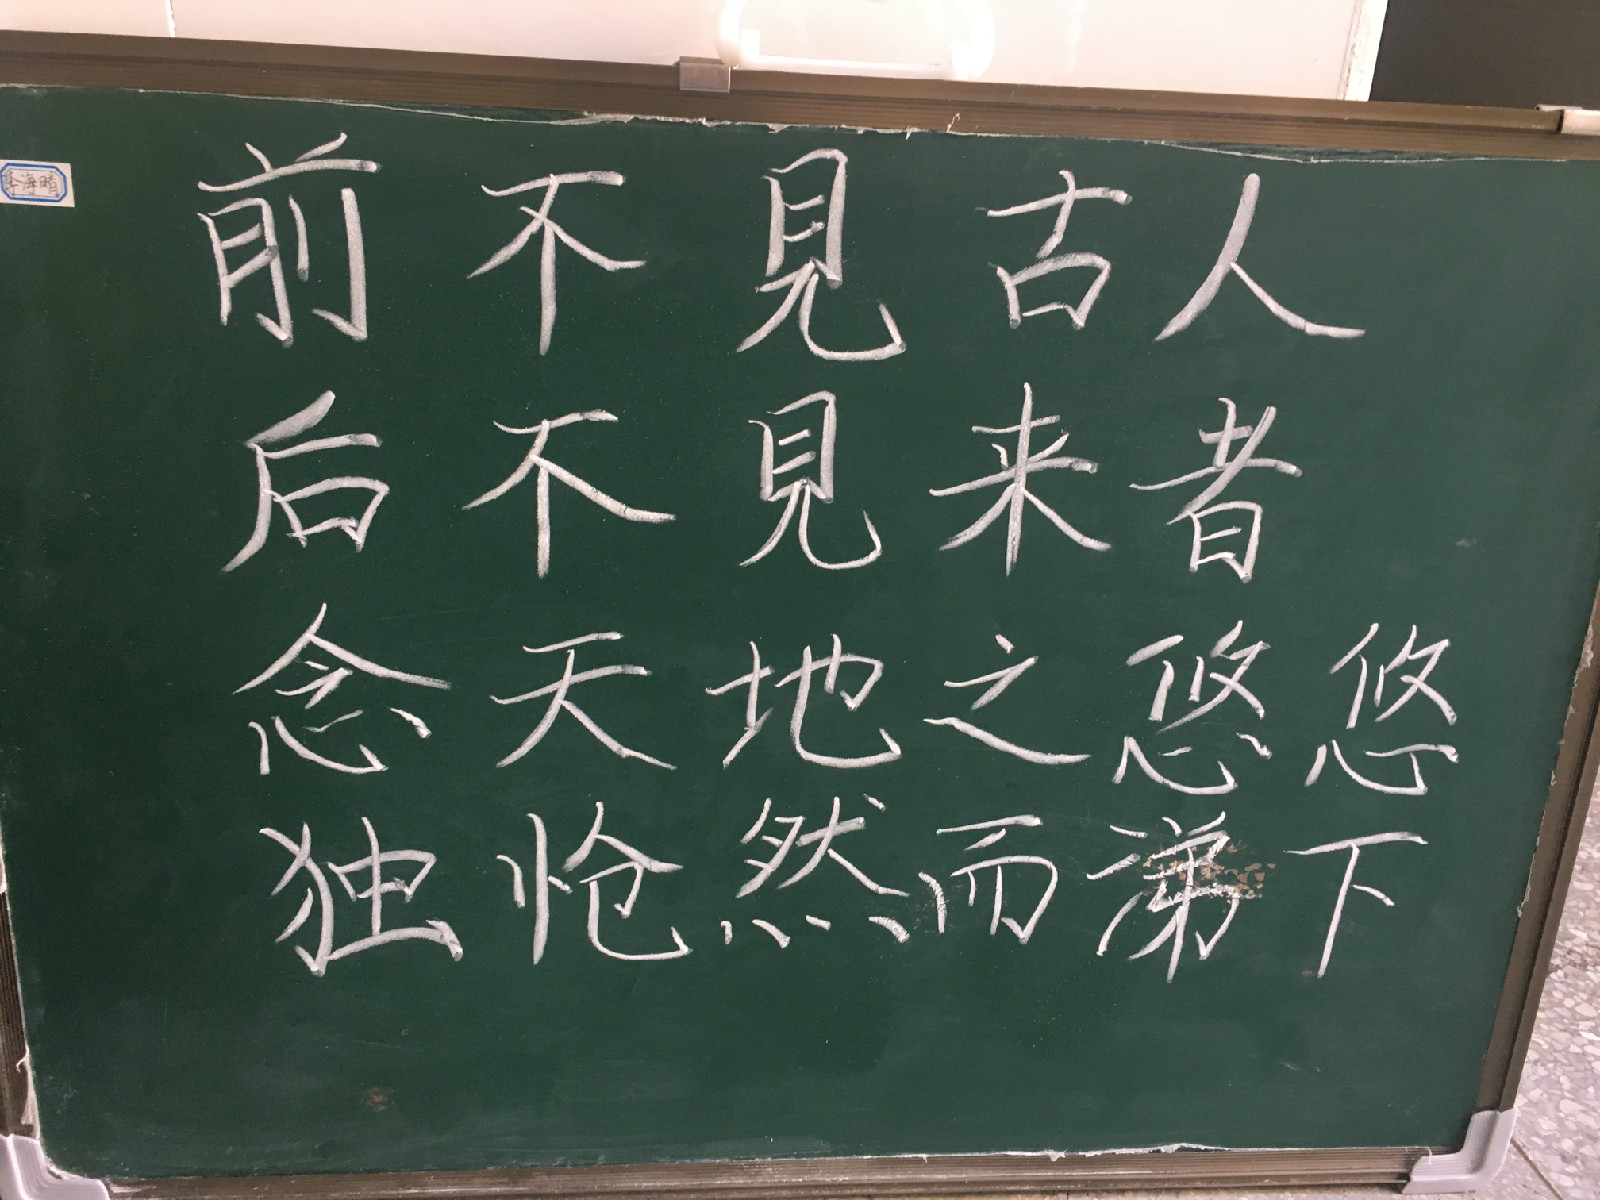 前不見古人
后不見来者
念天地之悠悠
独怆然而涕下
海晴